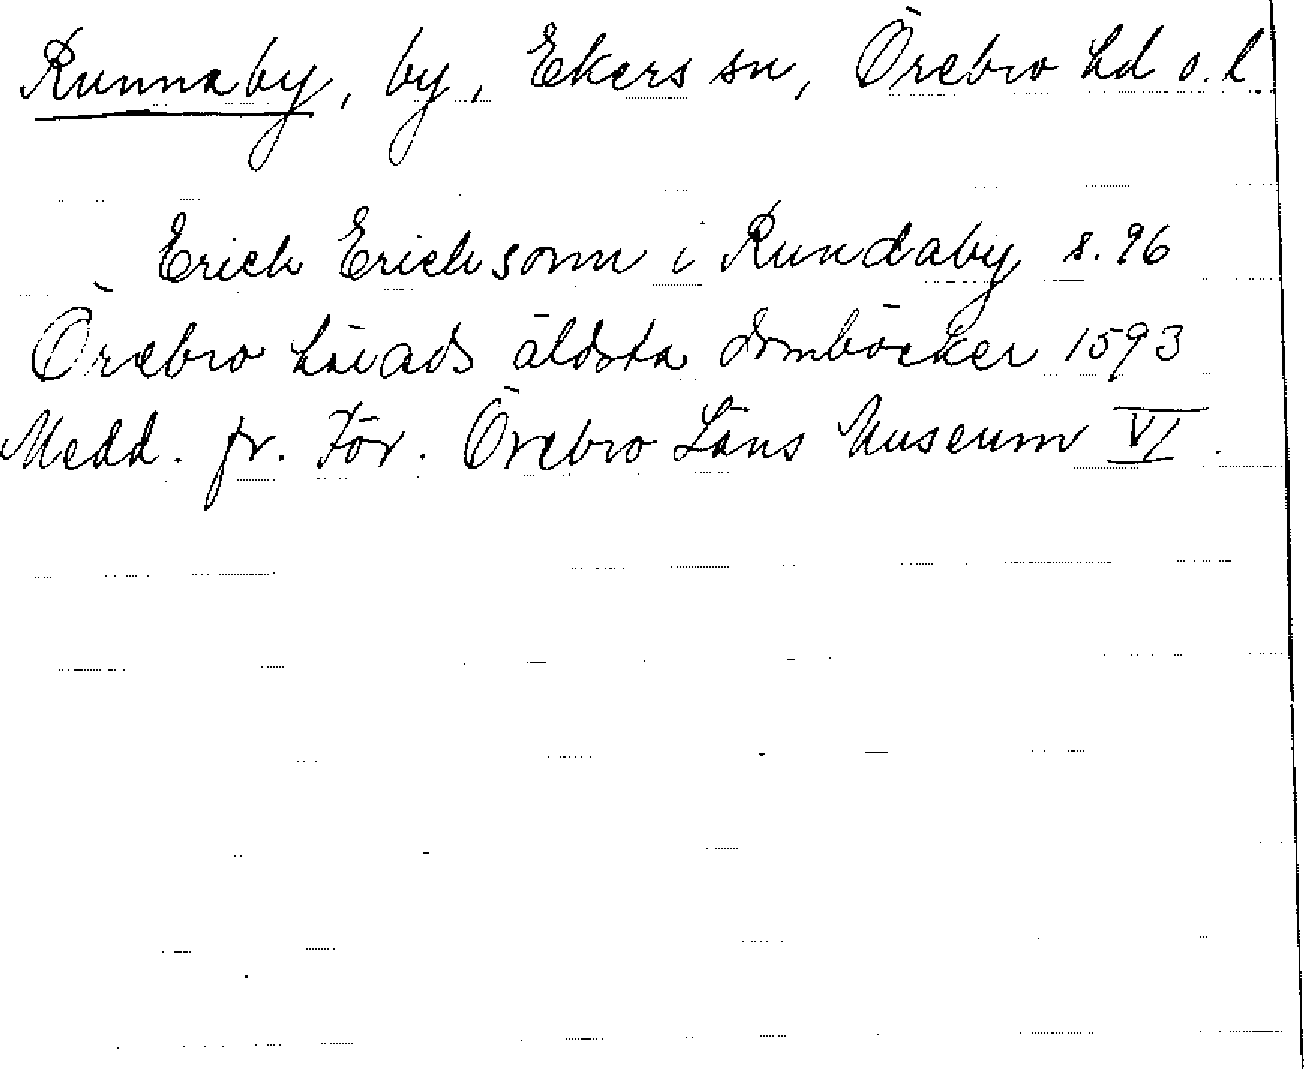 Runnaby, by, Ekers sn, Örebro hd o. l.
Erich Erichsonn i Rundaby s. 96
Örebro härads äldsta domböcker 1593
Medd. fr. För. Örebro Läns Museum VI.